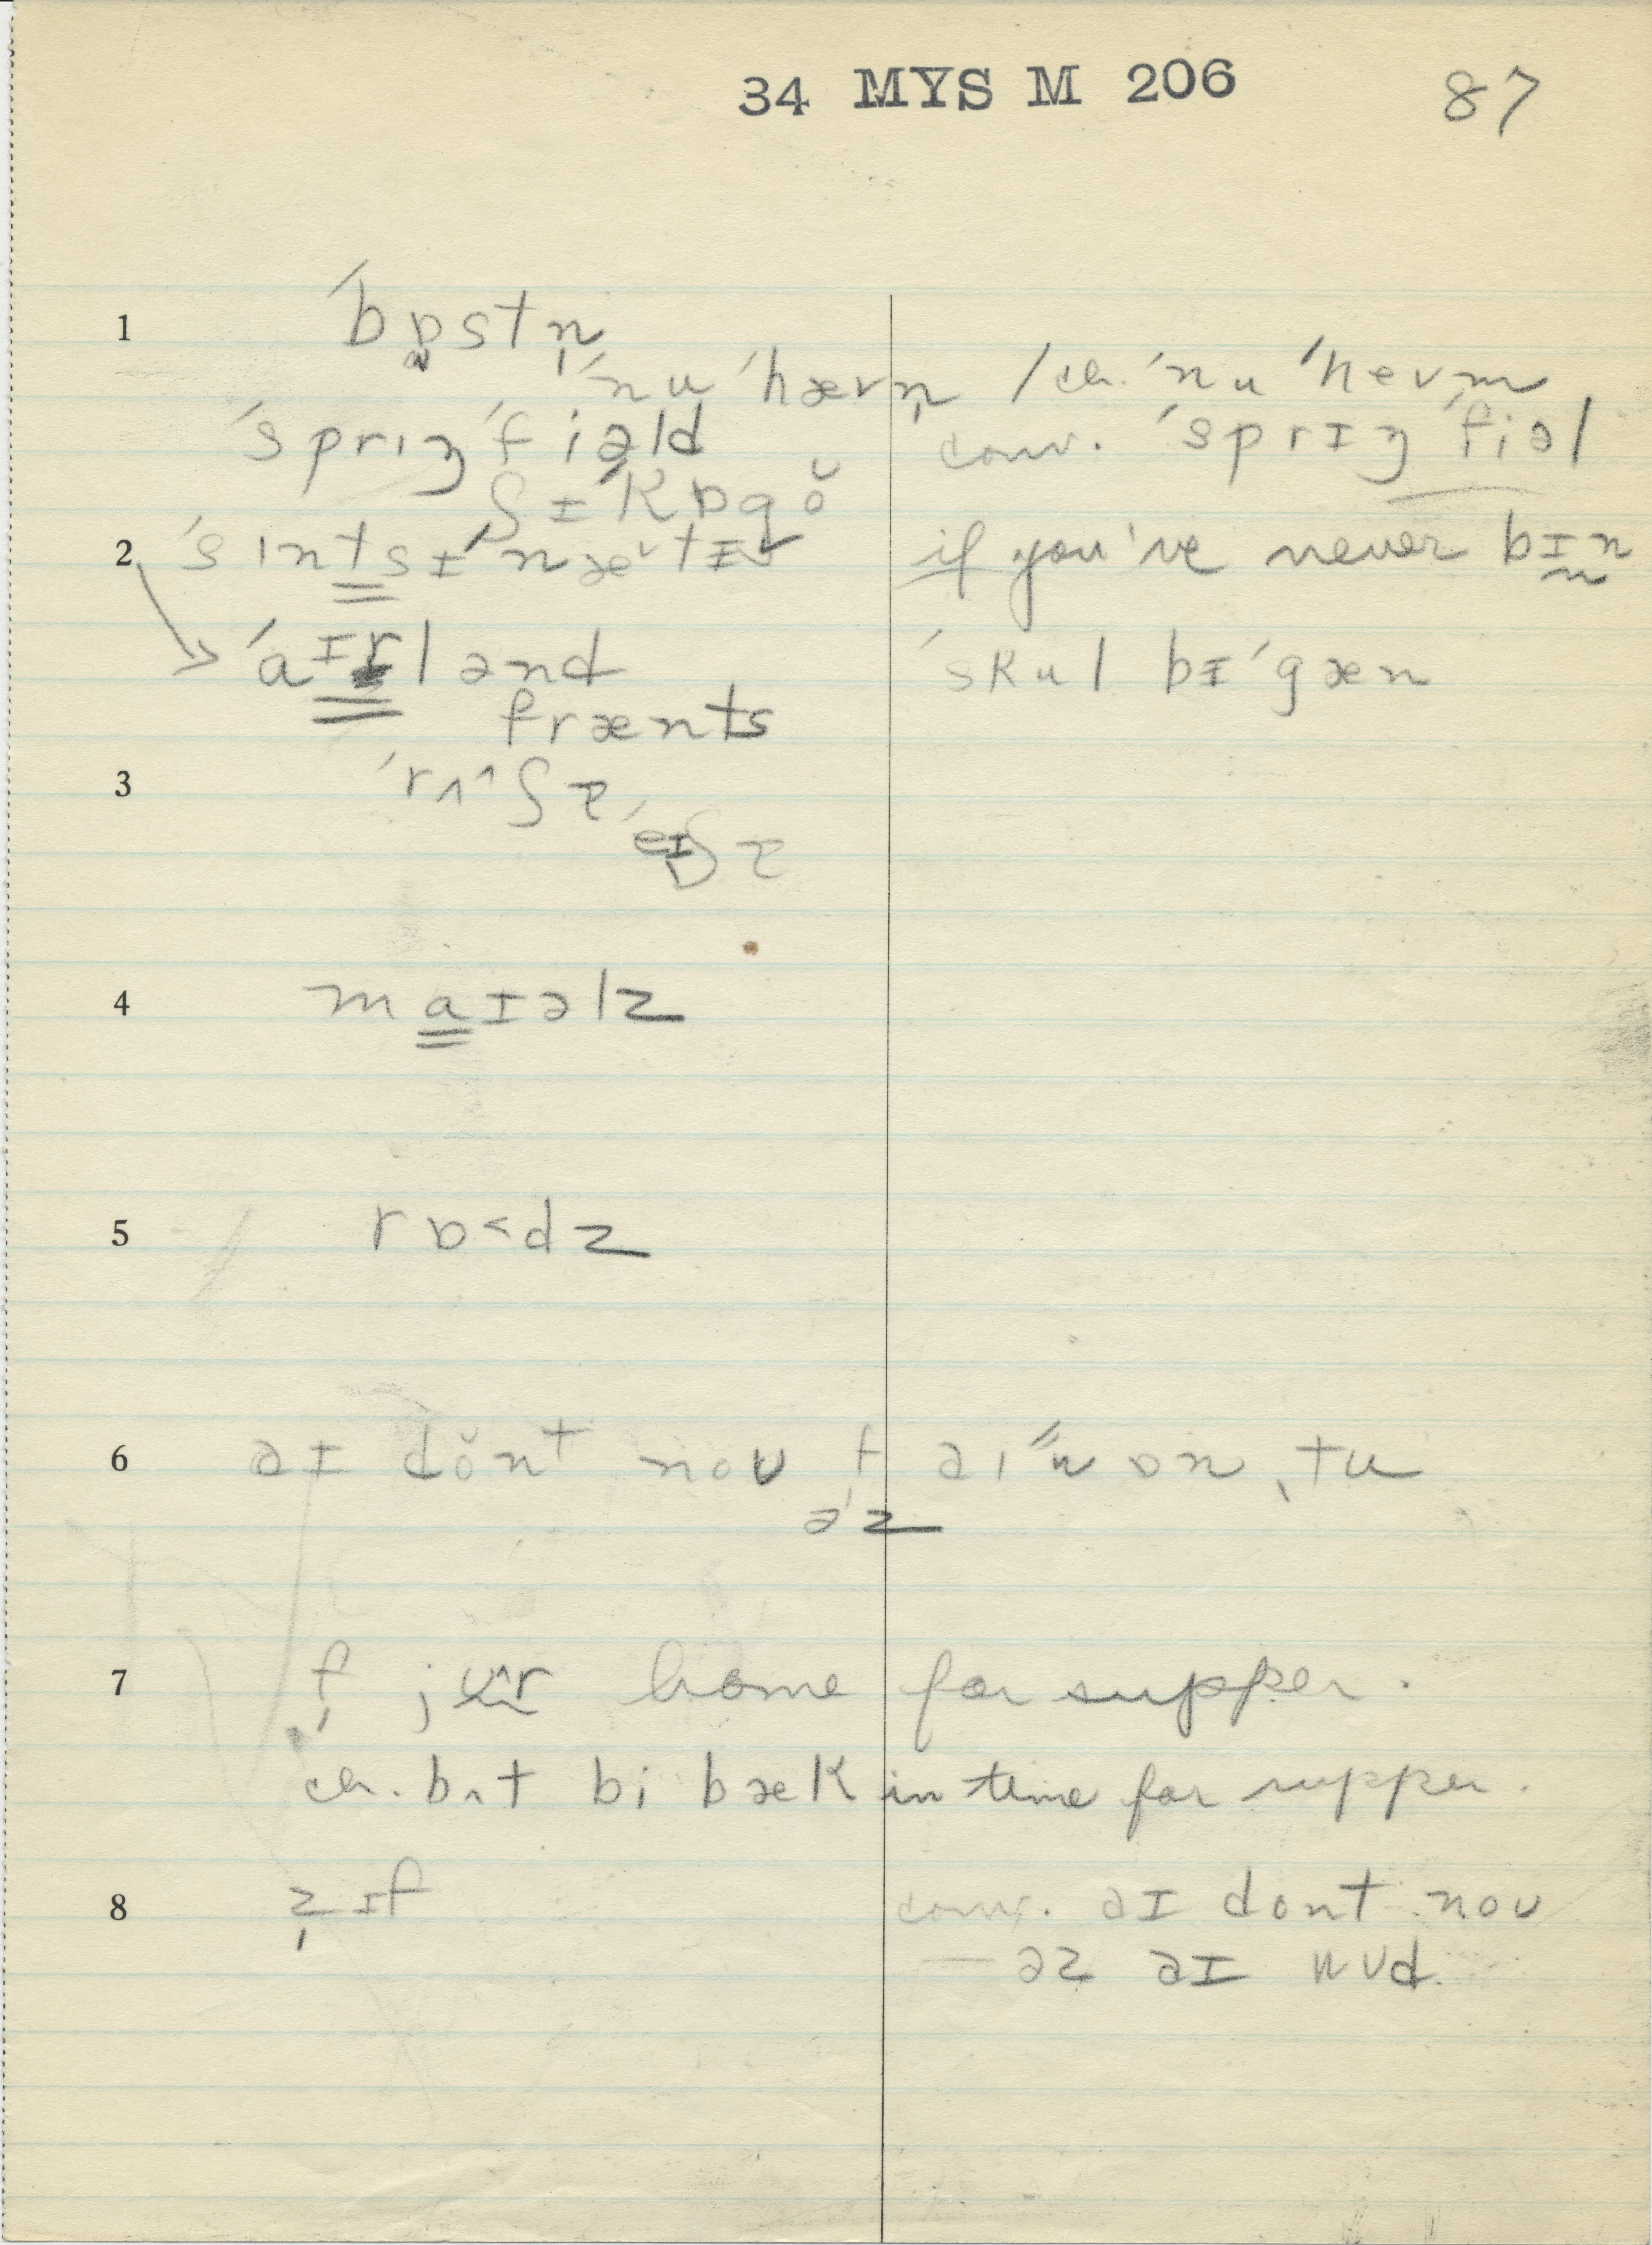 34 MYS M 206 87
1 ˈbɒstn̩
ˈnuˈhævn̩ / ch. ˈnuˈhevm
ˈsprɪŋˈfiəld conv. ˈsprɪŋˈfiəl
ʃɪˈkɒgŏ
2 ˈsɪntsɪˈnæˇtɪ if you've never bɪn
ˈaɪrlənd ˈskul bɪˈgæn
frænts
3 ˈrʌ^ʃə
ˈeɪʃə
4 maɪəlz
5 rɒ<dz
6 əɪ dŏnt noʊ f̩ əɪ ˝wɒn ˌtu
əz
7 f̩ jʊ^r home for supper.
ch. bʌt bi bæk in time for supper.
8 z̩ ɪf conv. əɪ dont noʊ
— əz əɪ wʊd.